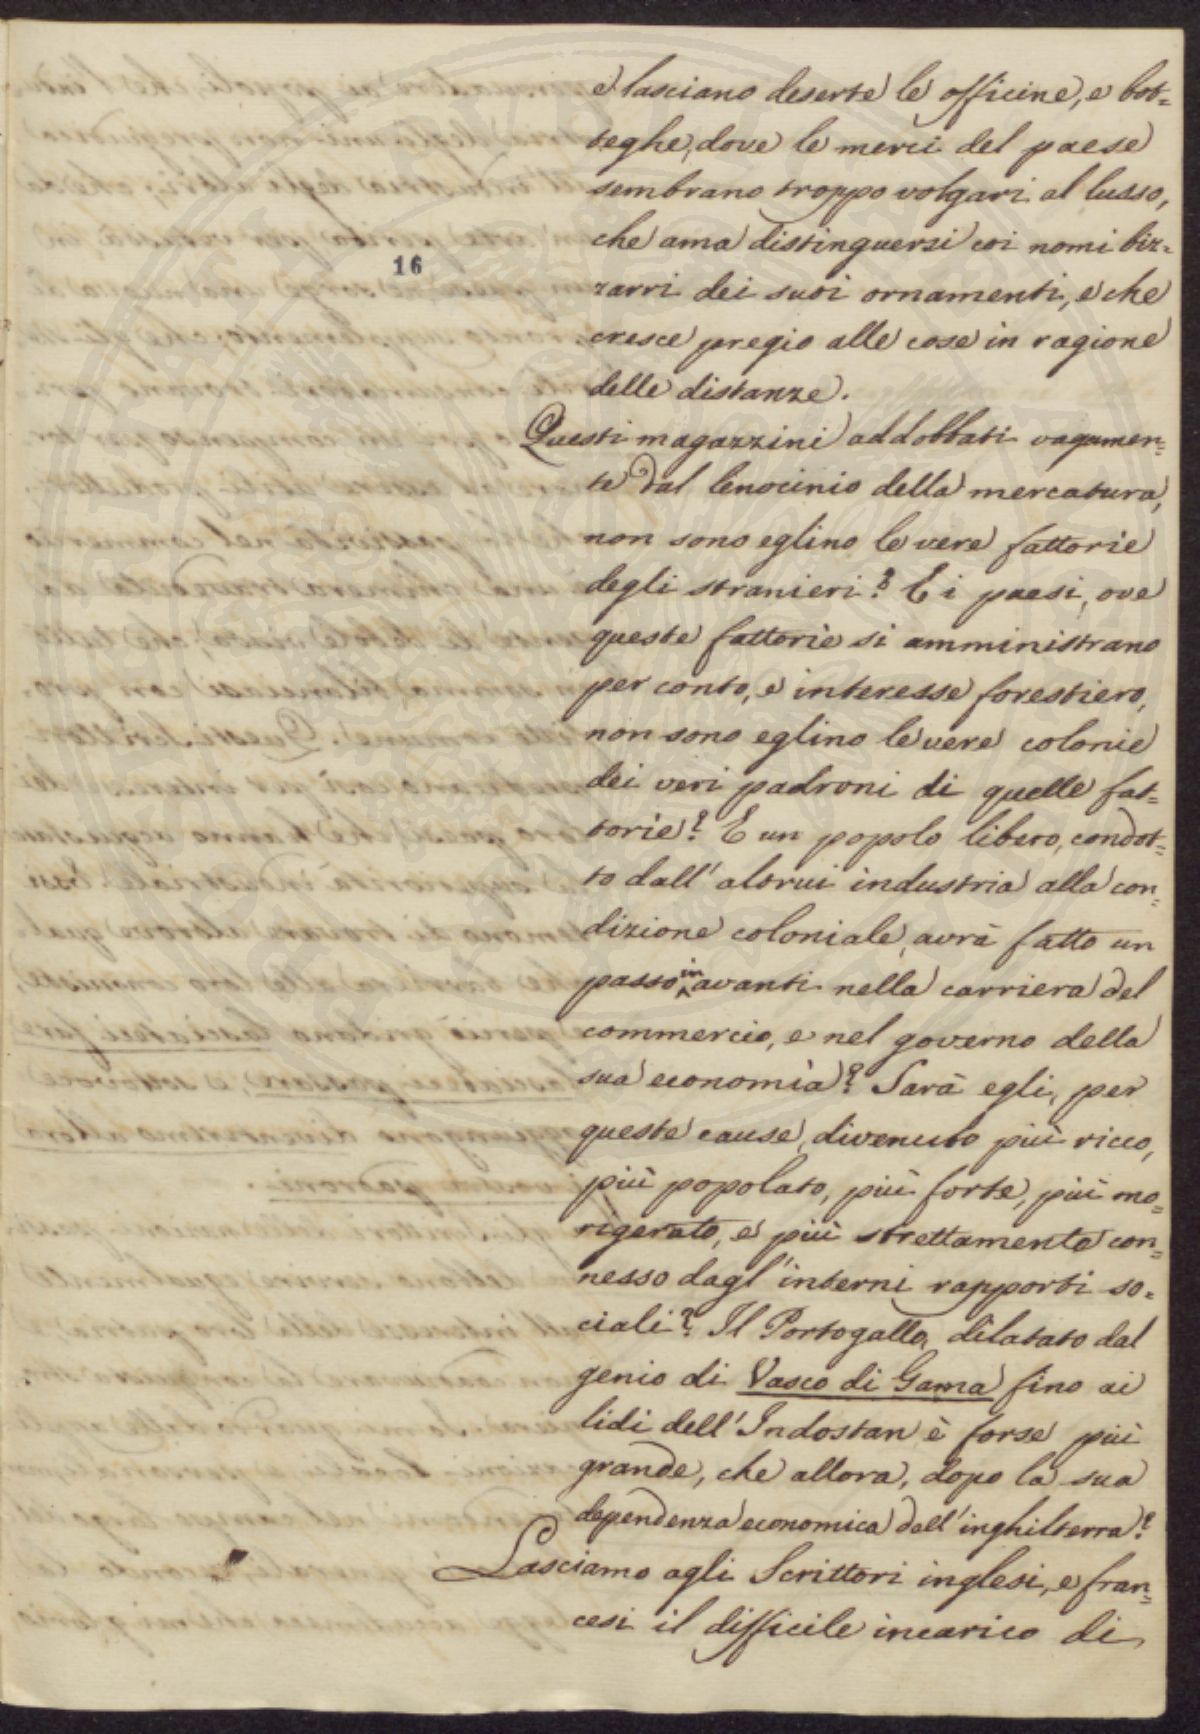 16
e lasciano deserte le officine, e bot=
teghe, dove le merci del paese
sembrano troppo volgari al lusso,
che ama distinguersi coi nomi biz=
zarri dei suoi ornamenti, e che
cresce pregio alle cose in ragione
delle distanze.
Questi magazzini addobbati vagamen=
te dal lenocinio della mercatura,
non sono eglino le vere fattorie
degli stranieri? E i paesi, ove
queste fattorie si amministrano
per conto, e interesse forestiero,
non sono eglino le vere colonie
dei veri padroni di quelle fat=
torie? E un popolo libero, condot=
to dall'altrui industria alla con=
dizione coloniale, avrà fatto un
passo in avanti nella carriera del
commercio, e nel governo della
sua economia? Sarà egli, per
queste cause, divenuto più ricco,
più popolato, più forte, più mo=
rigerato, e più strettamente con=
nesso dagl'interni rapporti so=
ciali? Il Portogallo, dilatato dal
genio di Vasco di Gama fino ai
lidi dell'Indostan è forse più
grande, che allora, dopo la sua
dependenza economica dell'inghilterra?
Lasciamo agli Scrittori inglesi, e fran=
cesi il difficile incarico di